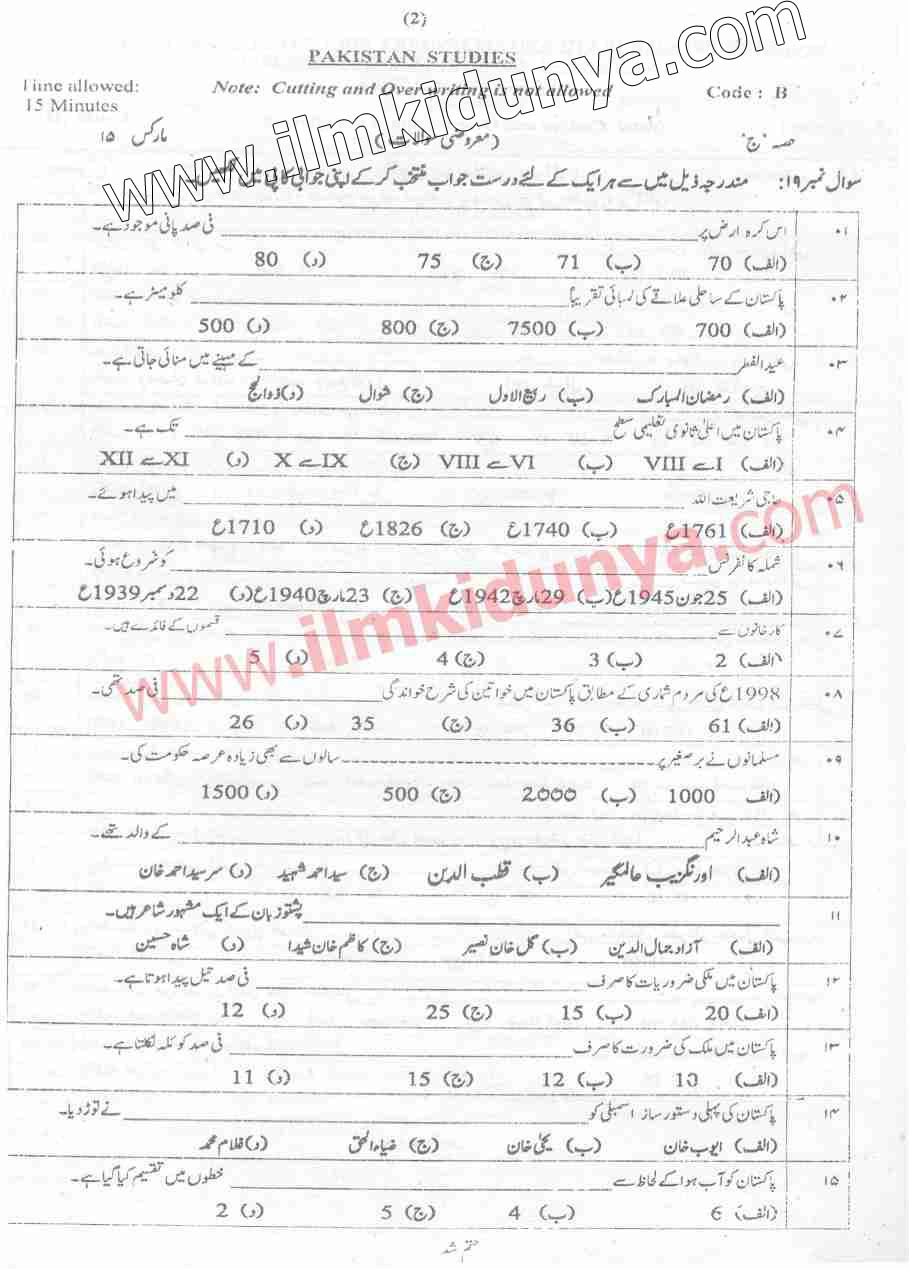 (2)
PAKISTAN STUDIES
Time allowed: 15 Minutes
Note: Cutting and Over writing is not allowed
Code : B
حصہ "ج"
(معروضی سوالات)
مارکس ۱۵
سوال نمبر ۱۹: مندرجہ ذیل میں سے ہر ایک کے لئے درست جواب منتخب کرکے اپنی جوابی کاپی میں لکھیں۔
۰۱ اس کرہ ارض پر ____ فی صد پانی موجود ہے۔
(الف) 70 (ب) 71 (ج) 75 (د) 80
۰۲ پاکستان کے ساحلی علاقے کی لمبائی تقریباً ____ کلومیٹر ہے۔
(الف) 700 (ب) 7500 (ج) 800 (د) 500
۰۳ عید الفطر ____ کے مہینے میں منائی جاتی ہے۔
(الف) رمضان المبارک (ب) ربیع الاول (ج) شوال (د) ذوالحج
۰۴ پاکستان میں اعلیٰ ثانوی تعلیمی سطح ____ تک ہے۔
(الف) I سے VIII (ب) VI سے VIII (ج) IX سے X (د) XI سے XII
۰۵ حاجی شریعت اللہ ____ میں پیدا ہوئے۔
(الف) 1761ع (ب) 1740ع (ج) 1826ع (د) 1710ع
۰۶ شملہ کانفرنس ____ کو شروع ہوئی۔
(الف) 25 جون 1945ع (ب) 29 مارچ 1942ع (ج) 23 مارچ 1940ع (د) 22 دسمبر 1939ع
۰۷ کارخانوں سے ____ قسموں کے فائدے ہیں۔
(الف) 2 (ب) 3 (ج) 4 (د) 5
۰۸ 1998ع کی مردم شماری کے مطابق پاکستان میں خواتین کی شرح خواندگی ____ فی صد تھی۔
(الف) 61 (ب) 36 (ج) 35 (د) 26
۰۹ مسلمانوں نے برصغیر پر ---- سالوں سے بھی زیادہ عرصہ حکومت کی۔
(الف 1000 (ب) 2000 (ج) 500 (د) 1500
۱۰ شاہ عبد الرحیم ____ کے والد تھے۔
(الف) اورنگزیب عالمگیر (ب) قطب الدین (ج) سید احمد شہید (د) سرسید احمد خان
۱۱ ____ پشتو زبان کے ایک مشہور شاعر ہیں۔
(الف) آزاد جمال الدین (ب) گل خان نصیر (ج) کاظم خان شیدا (د) شاہ حسین
۱۲ پاکستان میں ملکی ضروریات کا صرف ____ فی صد تیل پیدا ہوتا ہے۔
(الف) 20 (ب) 15 (ج) 25 (د) 12
۱۳ پاکستان میں ملک کی ضرورت کا صرف ____ فی صد کوئلہ نکلتا ہے۔
(الف) 10 (ب) 12 (ج) 15 (د) 11
۱۴ پاکستان کی پہلی دستور ساز اسمبلی کو ____ نے توڑ دیا۔
(الف) ایوب خان (ب) یحیٰ خان (ج) ضیاء الحق (د) غلام محمد
۱۵ پاکستان کو آب و ہوا کے لحاظ سے ____ خطوں میں تقسیم کیا گیا ہے۔
(الف) 6 (ب) 4 (ج) 5 (د) 2
ختم شد
www.ilmkidunya.com
www.ilmkidunya.com